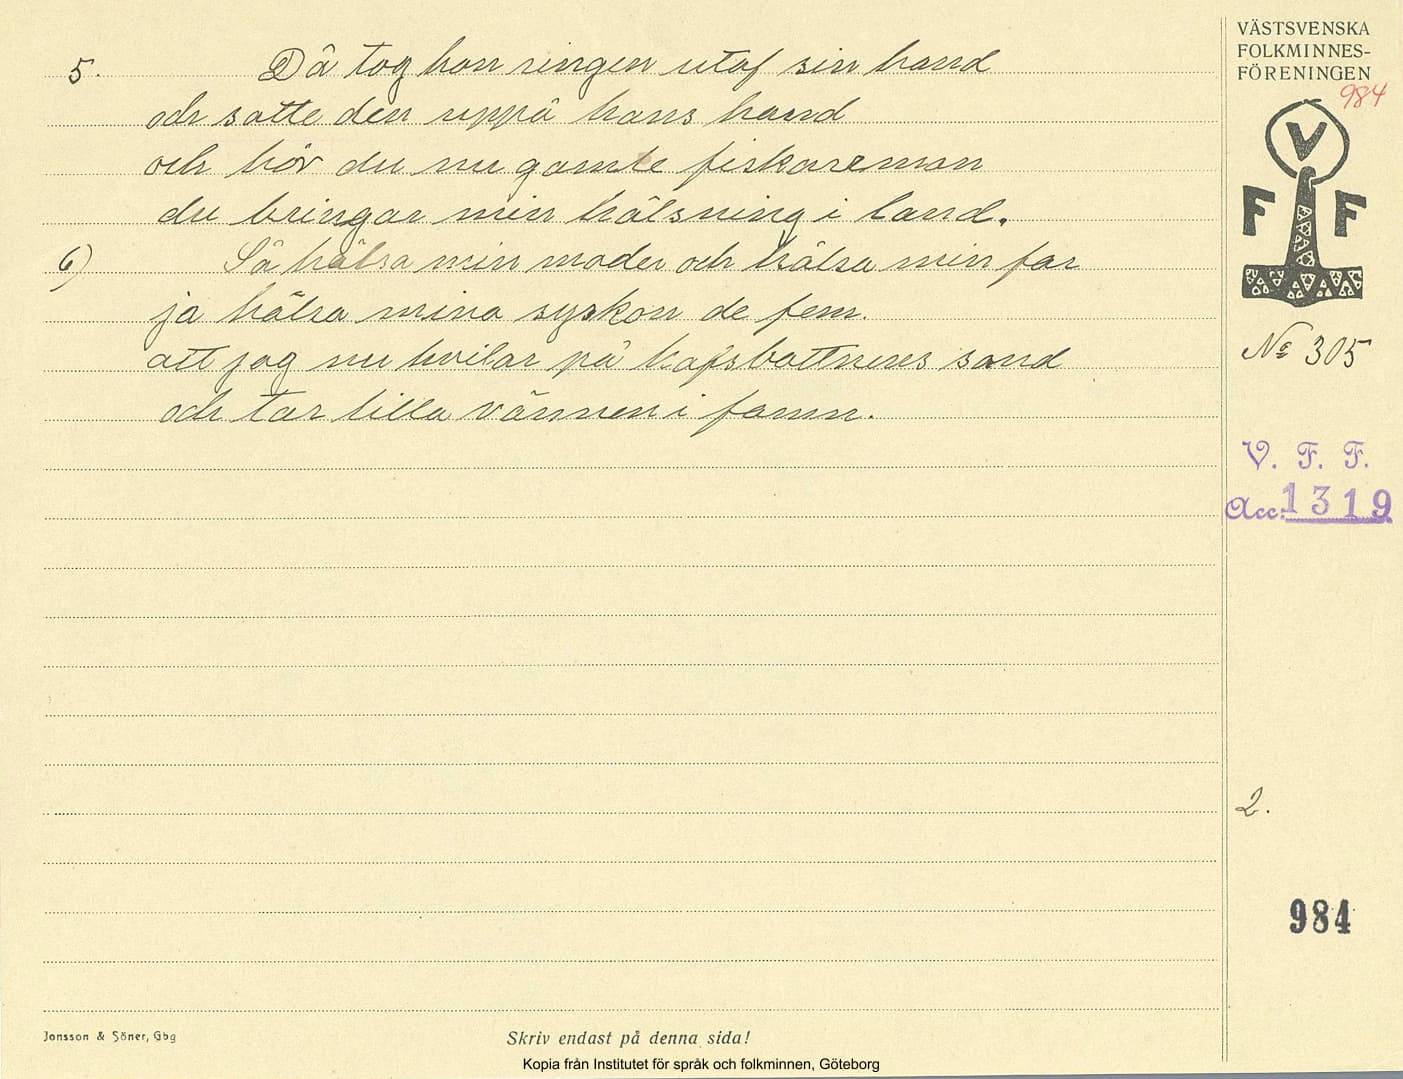 5. Då tog hon ringen utaf sin hand
och satte den uppå hans hand
och hör du nu gamle fiskareman
du bringar min hälsning i land.
6) Så hälsa min moder och hälsa min far
ja hälsa mina syskon de fem.
att jag nu hvilar på hafsbottnens sand
och tar lilla vännen i famn.
VÄSTSVENSKA
FOLKMINNES-
FÖRENINGEN
984
V
F F
No 305
V. F. F.
Acc. 1319
2.
984
Jonsson & Söner, Gbg
Skriv endast på denna sida!
Kopia från Institutet för språk och folkminnen, Göteborg